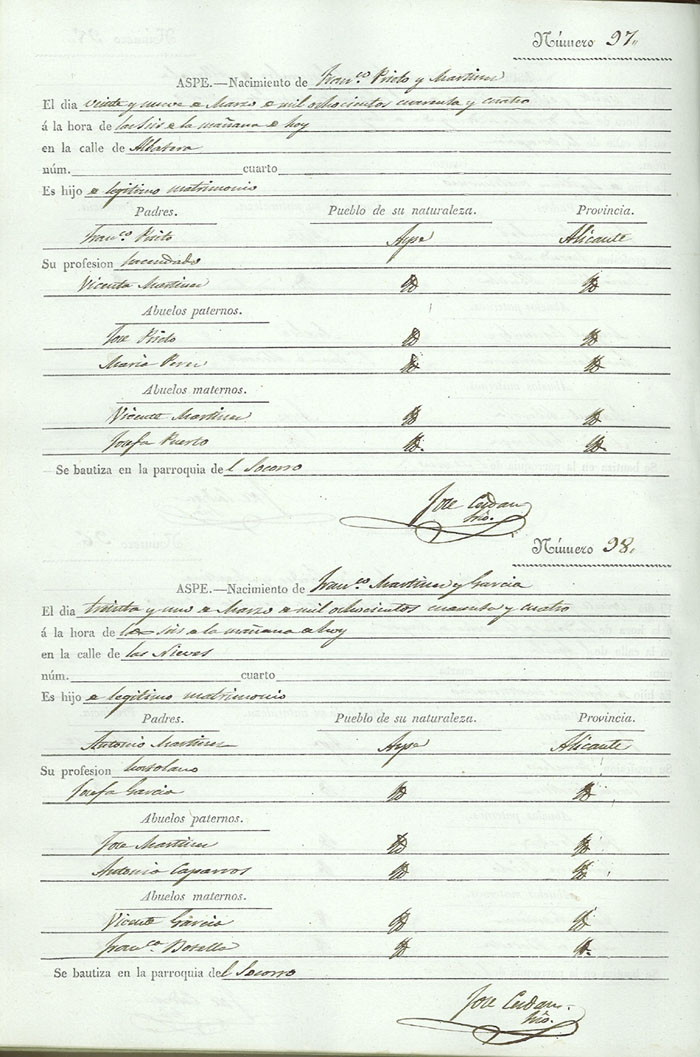 Número 97.
ASPE.—Nacimiento de Fran.co Prieto y Martinez
El dia veinte y nueve de Marzo de mil ochocientos cuarenta y cuatro
á la hora de las seis de la mañana de hoy
en la calle de Albatera
núm. cuarto
Es hijo de legitimo matrimonio
Padres. Pueblo de su naturaleza. Provincia.
Fran.co Prieto Aspe Alicante
Su profesion hacendado
Vicenta Martinez Yd Yd
Abuelos paternos.
Jose Prieto Yd Yd
Maria Yd Yd
Abuelos maternos.
Vicente Martinez Yd Yd
Josefa Puerto Yd. Yd.
Se bautiza en la parroquia del Socorro
Jose Cerdan
Srio.
Número 98.
ASPE.—Nacimiento de Fran.co Martinez y Garcia
El dia treinta y uno de Marzo de mil ochocientos cuarenta y cuatro
á la hora de las seis de la mañana de hoy
en la calle de las Nieves
núm. cuarto
Es hijo de legitimo matrimonio
Padres. Pueblo de su naturaleza. Provincia.
Antonio Martinez Aspe Alicante
Su profesion hortolano
Josefa Garcia Yd Yd
Abuelos paternos.
Jose Martinez Yd Yd
Antonia Caparros Yd Yd
Abuelos maternos.
Vicente Garcia Yd Yd
Fran.ca Botella Yd Yd.
Se bautiza en la parroquia del Socorro
Jose Cerdan.
Srio.